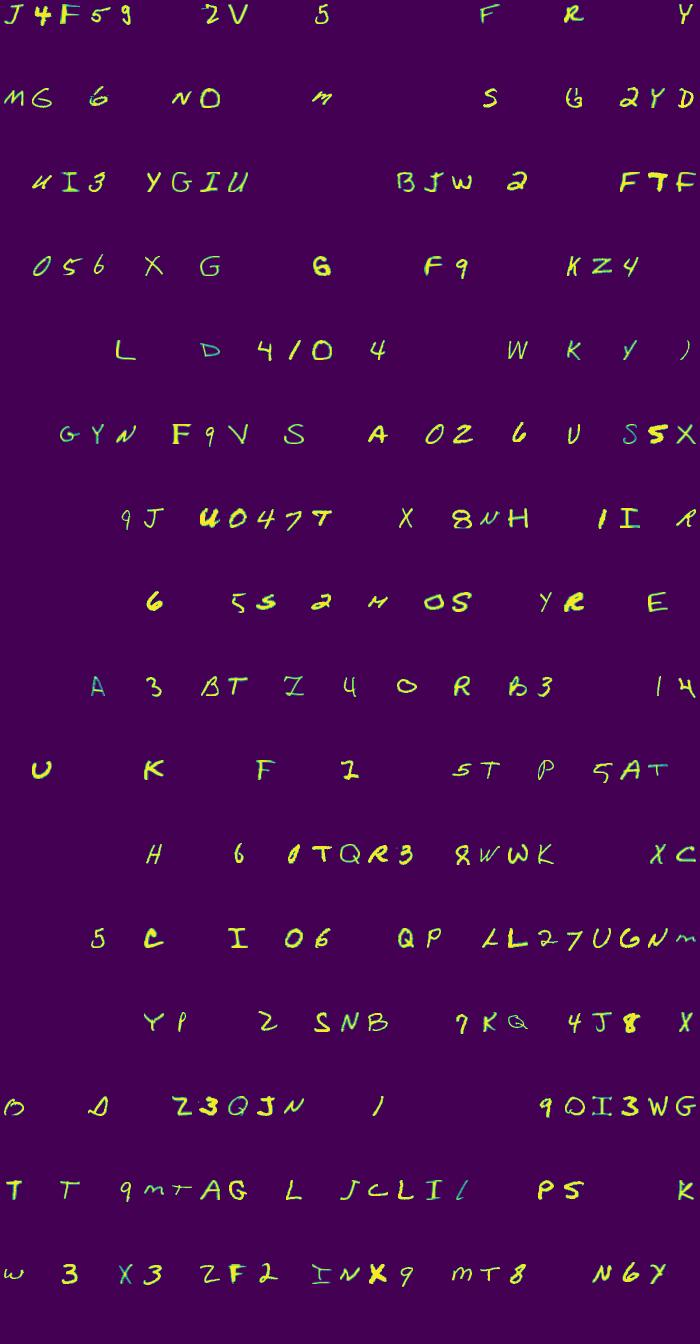 J4F59 2V 5 F R Y
MG 6 NO M S G 2YD
UI3 YGIU BJW 2 FTF
056 X G 6 F9 KZ4
L D 4/O 4 W K Y )
GYN F9V S A 02 6 U S5X
9J U047T X 8NH 1I R
6 5S 2 M OS YR E
A 3 BT Z 4 O R B3 14
U K F 2 5T P 5AT
H 6 0TQR3 8WWK XC
5 C I 06 QP LL27UGNM
YP 2 SNB 7KQ 4J8 X
B D Z3QJN 1 9OI3WG
T T 9MTAG L JCLIL P5 K
W 3 X3 ZF2 INX9 MT8 N6Y